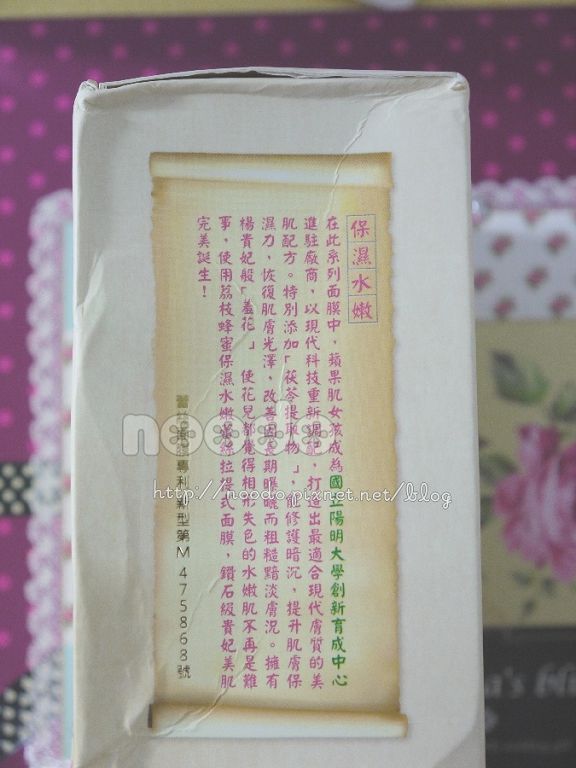 保濕水嫩
在此系列面膜中，蘋果肌女孩成為國立陽明大學創新育成中心
進駐廠商，以現代科技重新調配，打造出最適合現代膚質的美
肌配方。特別添加「茯苓提取物」，能修護暗沉，提升肌膚保
濕力，恢復肌膚光澤，改善因長期曝曬而粗糙黯淡膚況。擁有
楊貴妃般「羞花」使花兒都覺得相形失色的水嫩肌不再是難
事，使用荔枝蜂蜜保濕水嫩蕾絲拉提式面膜，鑽石級貴妃美肌
完美誕生！
蕾絲面膜專利新型第M475868號
noodo
http://noodo.pixnet.net/blog